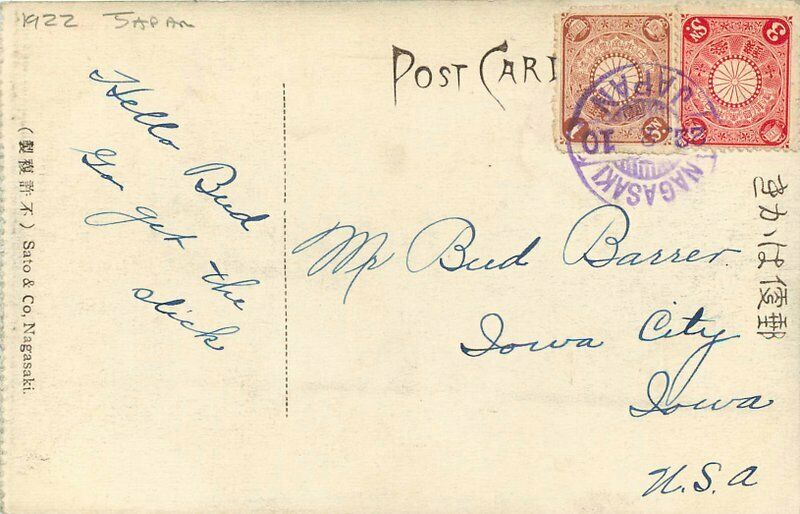 1922 JAPAN
POST CARD
3 SN
1 SN
NAGASAKI JAPAN
10 22
Hello Bud
Go get the
slick
Mr Bud Barrer
Iowa City
Iowa
U.S.A
きかは便郵
(製複許不) Sato & Co, Nagasaki.